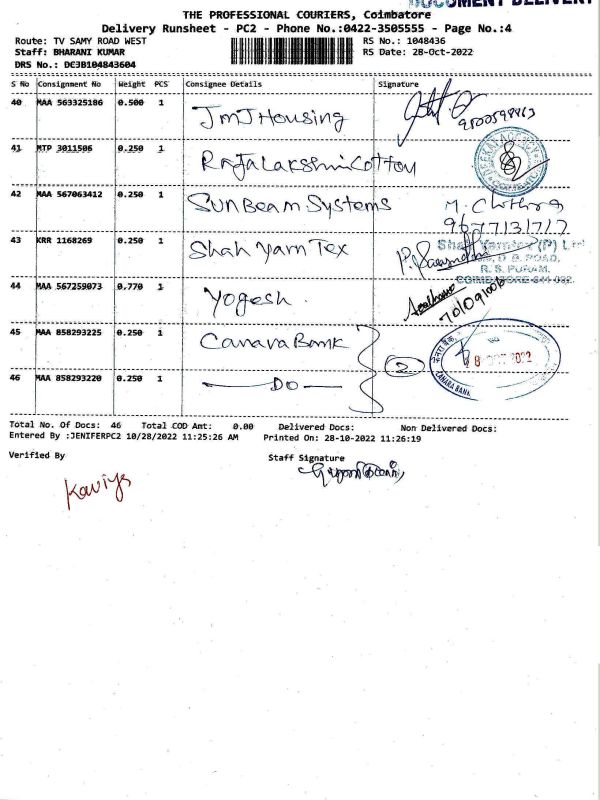 DOCUMENT DELIVERY
THE PROFESSIONAL COURIERS, Coimbatore
Delivery Runsheet - PC2 - Phone No.:0422-3505555 - Page No.:4
Route: TV SAMY ROAD WEST
RS No.: 1048436
Staff: BHARANI KUMAR
RS Date: 28-Oct-2022
DRS No.: DC3B104843604
S No Consignment No Weight PCS Consignee Details Signature
40 MAA 563325186 0.500 1 JmJ Housing
41 MTP 3011506 0.250 1 RajaLakshmi Cotton
42 MAA 567063412 0.250 1 SunBeam Systems
9677131717
43 KRR 1168269 0.250 1 Shah Yarn Tex
Shah Yarntex (P) Ltd
D. B. ROAD,
R. S. PURAM,
COIMBATORE-641 002.
44 MAA 567259073 0.770 1 Yogesh
45 MAA 858293225 0.250 1 Canara Bank
2
CANARA BANK
46 MAA 858293220 0.250 1 — DO —
Total No. Of Docs: 46 Total COD Amt: 0.00 Delivered Docs: Non Delivered Docs:
Entered By :JENIFERPC2 10/28/2022 11:25:26 AM Printed On: 28-10-2022 11:26:19
Verified By
Staff Signature
Kaviya